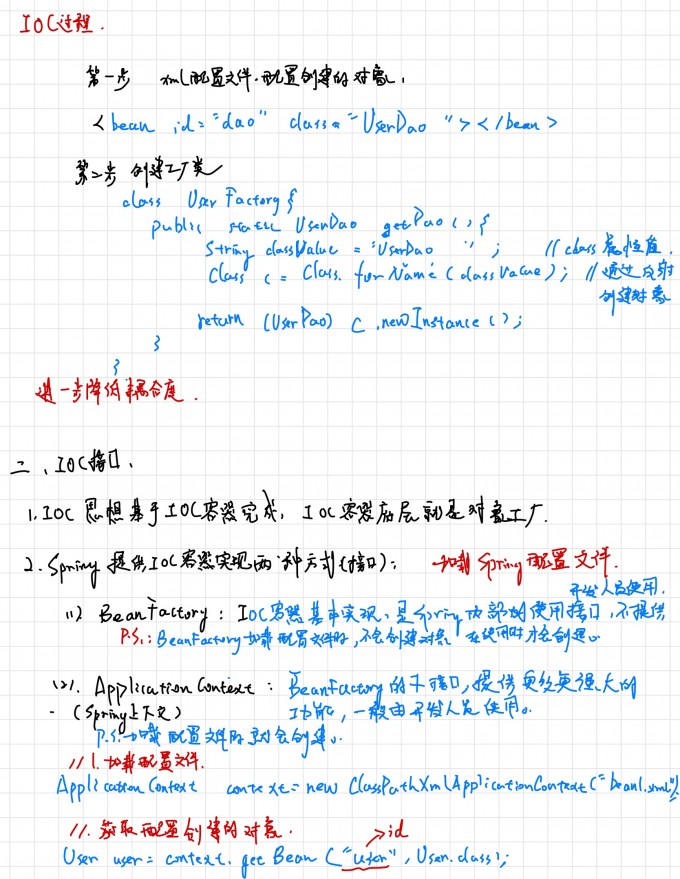 IOC过程.
第一步 xml配置文件.配置创建的对象,
<bean id="dao" class="UserDao"></bean>
第二步 创建工厂类
class UserFactory{
public static UserDao getDao(){
String classValue = "UserDao"; //class属性值.
Class c = Class.forName(classValue); //通过反射
创建对象
return (UserDao) c.newInstance();
}
}
进一步降低耦合度.
二、IOC接口.
1.IOC思想基于IOC容器完成, IOC容器底层就是对象工厂.
2.Spring提供IOC容器实现两种方式(接口): 加载Spring配置文件.
开发人员使用.
(1) BeanFactory: IOC容器基本实现,是Spring内部的使用接口,不提供
P.S.: BeanFactory加载配置文件时,不会创建对象 在使用时才会创建。
(2). ApplicationContext: BeanFactory的子接口,提供更多更强大的
(Spring上下文) 功能,一般由开发人员使用。
P.S.加载配置文件时就会创建。
//1.加载配置文件.
ApplicationContext context = new ClassPathXmlApplicationContext("bean1.xml");
//. 获取配置创建的对象. >id
User user = context.getBean("user", User.class);